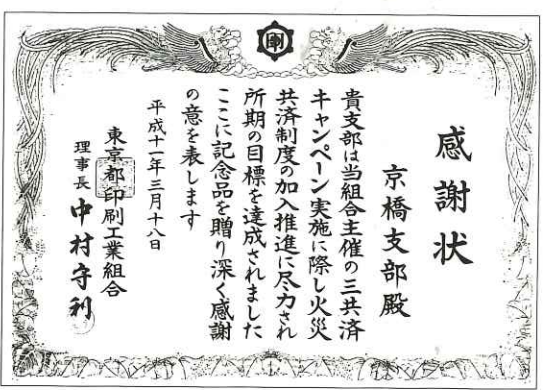 印
感謝状
京橋支部殿
貴支部は当組合主催の三共済
キャンペーン実施に際し火災
共済制度の加入推進に尽力され
所期の目標を達成されました
ここに記念品を贈り深く感謝
の意を表します
平成十一年三月十八日
東京都印刷工業組合
理事長 中村守利